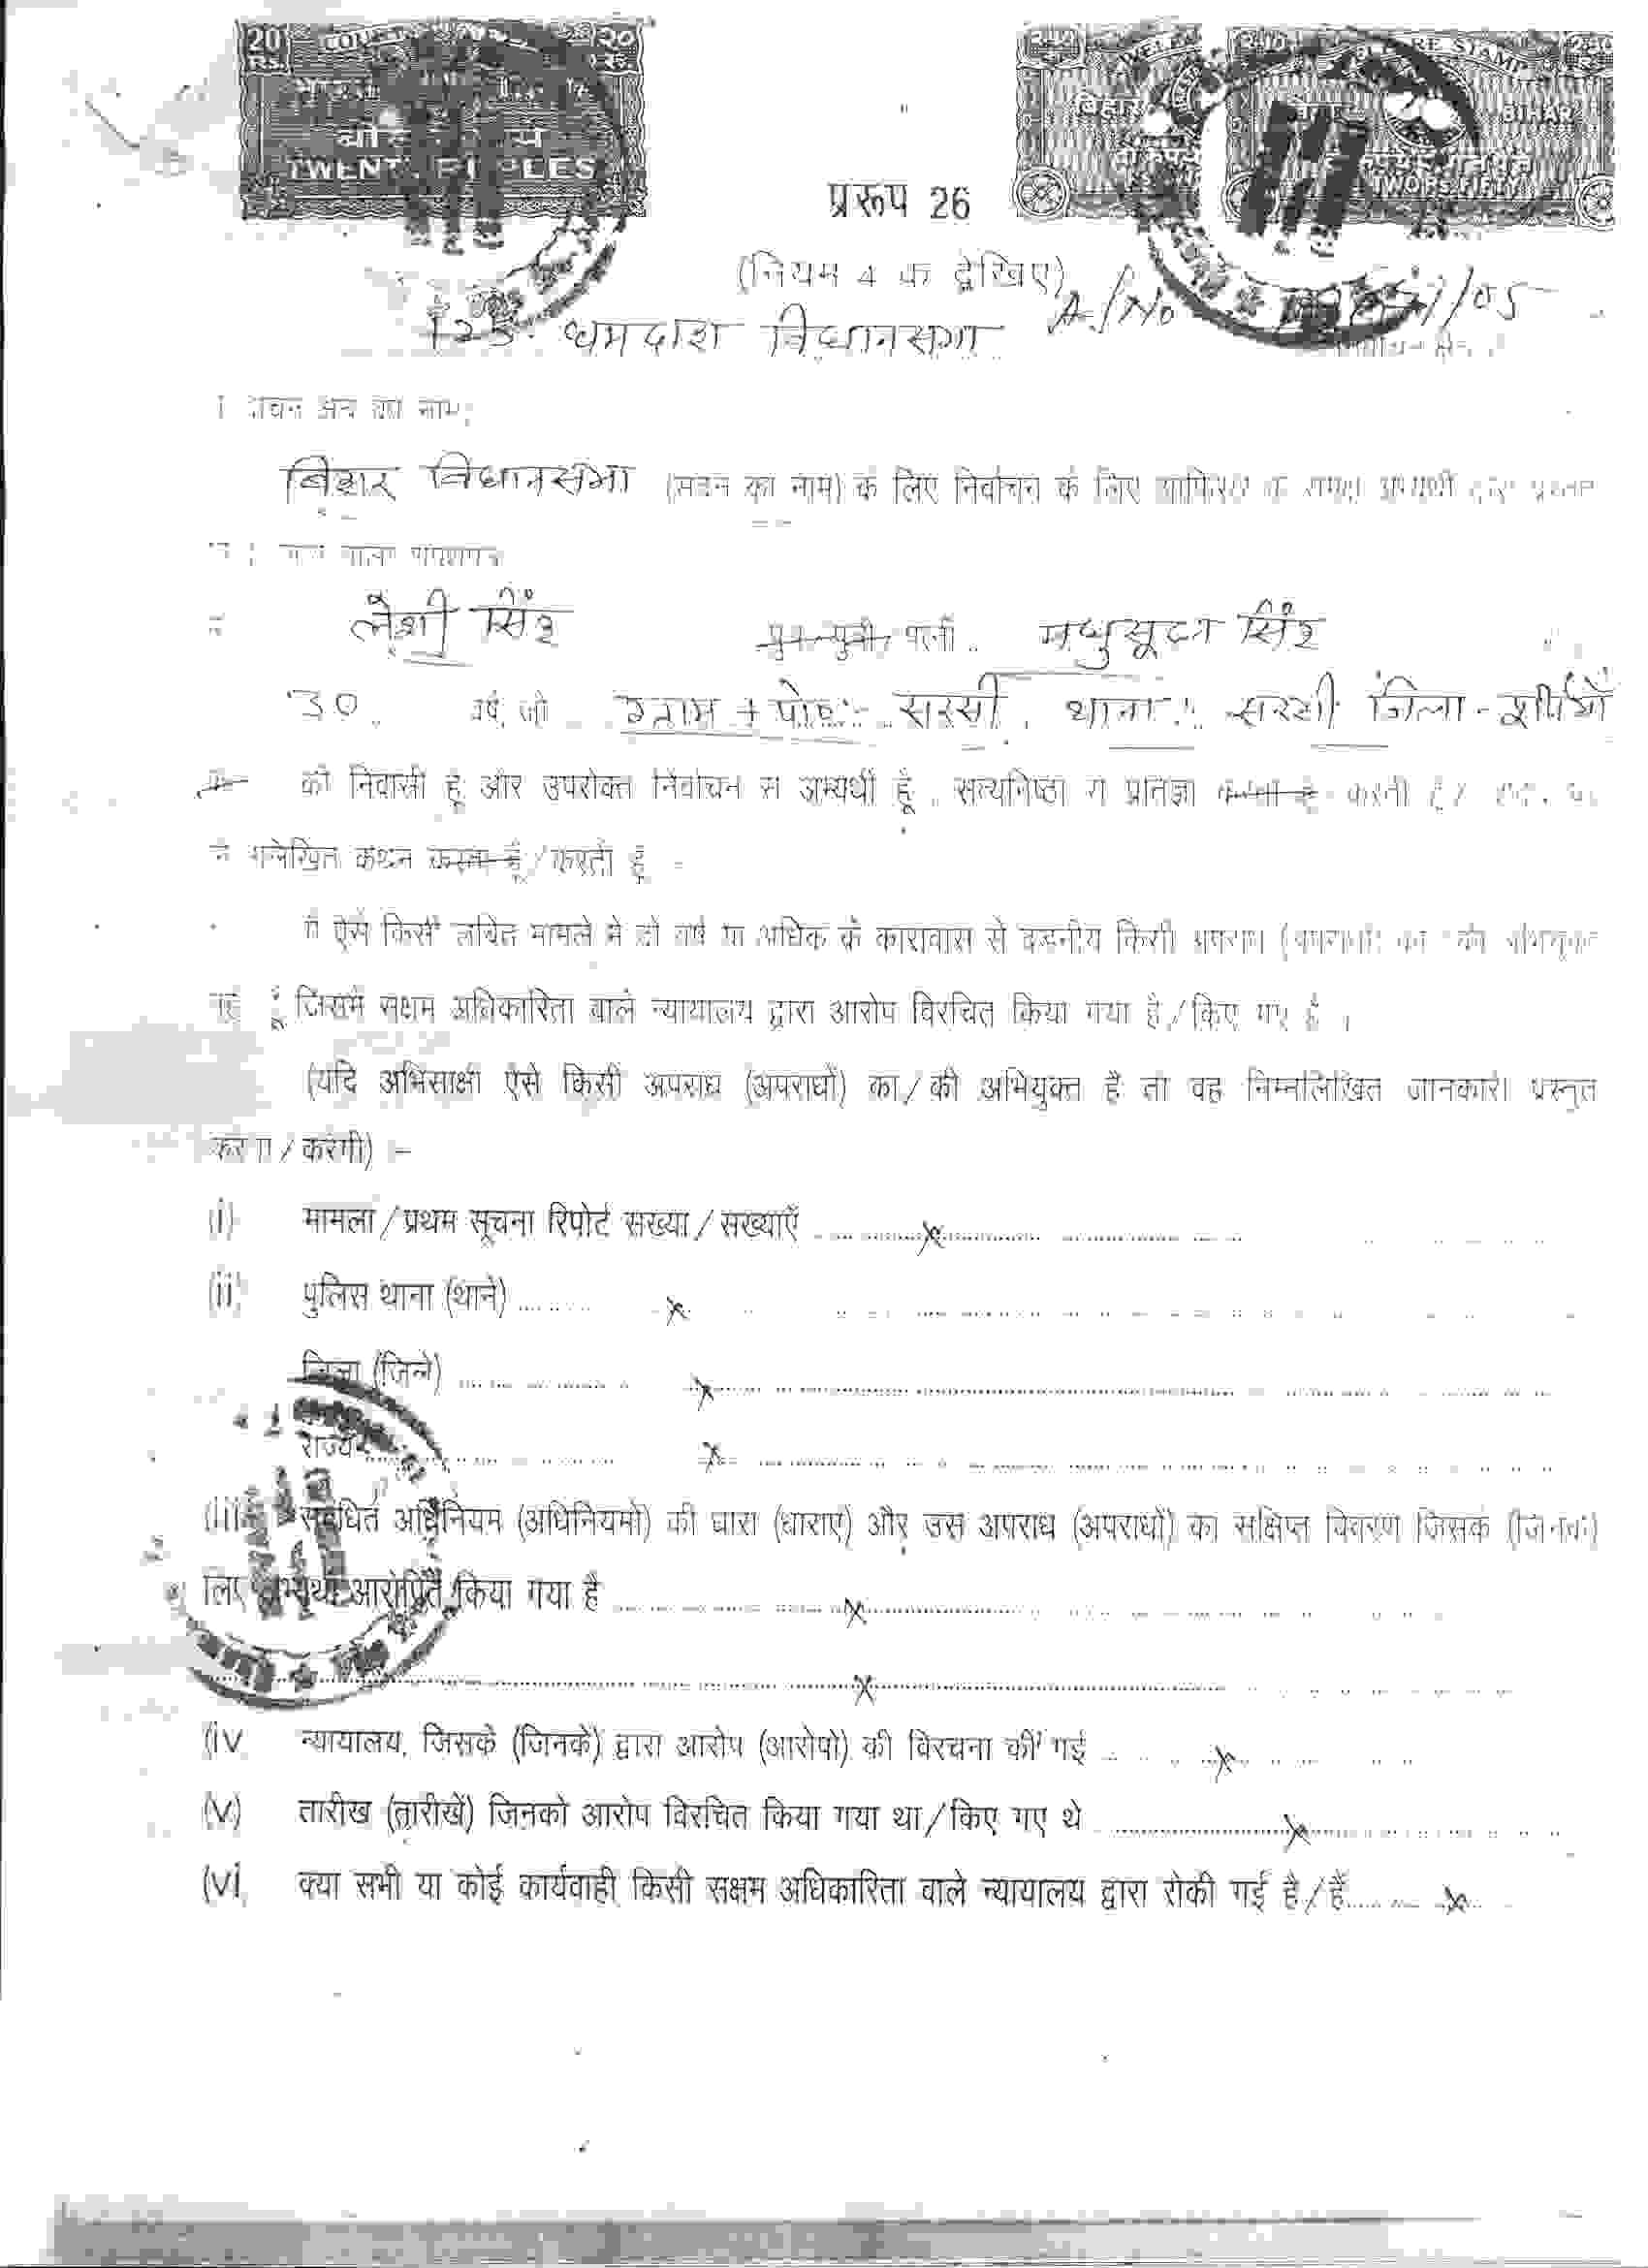 20 RS. COURT 20
TWENTY RUPEES
बिहार WELFARE STAMP BIHAR
TWO RS. FIFTY
प्ररूप 26
(नियम 4 क देखिए)
A/No /05
125 धमदाहा विधानसभा
निर्वाचन क्षेत्र का नाम,
बिहार विधानसभा (सदन का नाम) के लिए निर्वाचन के लिए अभ्यर्थी द्वारा प्रस्तुत
जाने वाला शपथपत्र
लेशी सिंह पुत्र/पुत्री/पत्नी मधुसूदन सिंह
30 वर्ष, जो ग्राम + पोस्ट सरसी, थाना सरसी जिला - पूर्णियाँ
की निवासी हूँ और उपरोक्त निर्वाचन से अभ्यर्थी हूँ, सत्यनिष्ठा से प्रतिज्ञा करता हूँ करती हूँ /
निम्नलिखित कथन करता हूँ/करती हूँ -
मैं ऐसे किसी लंबित मामले में दो वर्ष या अधिक के कारावास से दंडनीय किसी अपराध (अपराधों) का/की अभियुक्त
नहीं हूँ जिसमें सक्षम अधिकारिता वाले न्यायालय द्वारा आरोप विरचित किया गया है/किए गए हैं ।
(यदि अभिसाक्षी ऐसे किसी अपराध (अपराधों) का/की अभियुक्त है तो वह निम्नलिखित जानकारी प्रस्तुत
करेगा/करेगी) :-
(i) मामला/प्रथम सूचना रिपोर्ट संख्या/संख्याएँ ........ x ........
(ii) पुलिस थाना (थाने) ........ x ........
जिला (जिले) ........ x ........
राज्य ........ x ........
(iii) संबंधित अधिनियम (अधिनियमों) की धारा (धाराएं) और उस अपराध (अपराधों) का संक्षिप्त विवरण जिसके (जिनके)
लिए अभ्यर्थी आरोपित किया गया है ........ x ........
........ x ........
(iv) न्यायालय, जिसके (जिनके) द्वारा आरोप (आरोपों) की विरचना की गई ........ x ........
(v) तारीख (तारीखें) जिनको आरोप विरचित किया गया था/किए गए थे ........ x ........
(vi) क्या सभी या कोई कार्यवाही किसी सक्षम अधिकारिता वाले न्यायालय द्वारा रोकी गई है/हैं ........ x ........